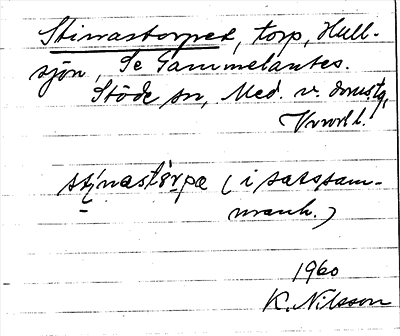 Stinastorpet, torp, Hull-
sjön, Se Gammelantes.
Stöde sn, Med. v. domsg,
stýnastòrpe (i satssam-
manh.)
1960
K. Nilsson